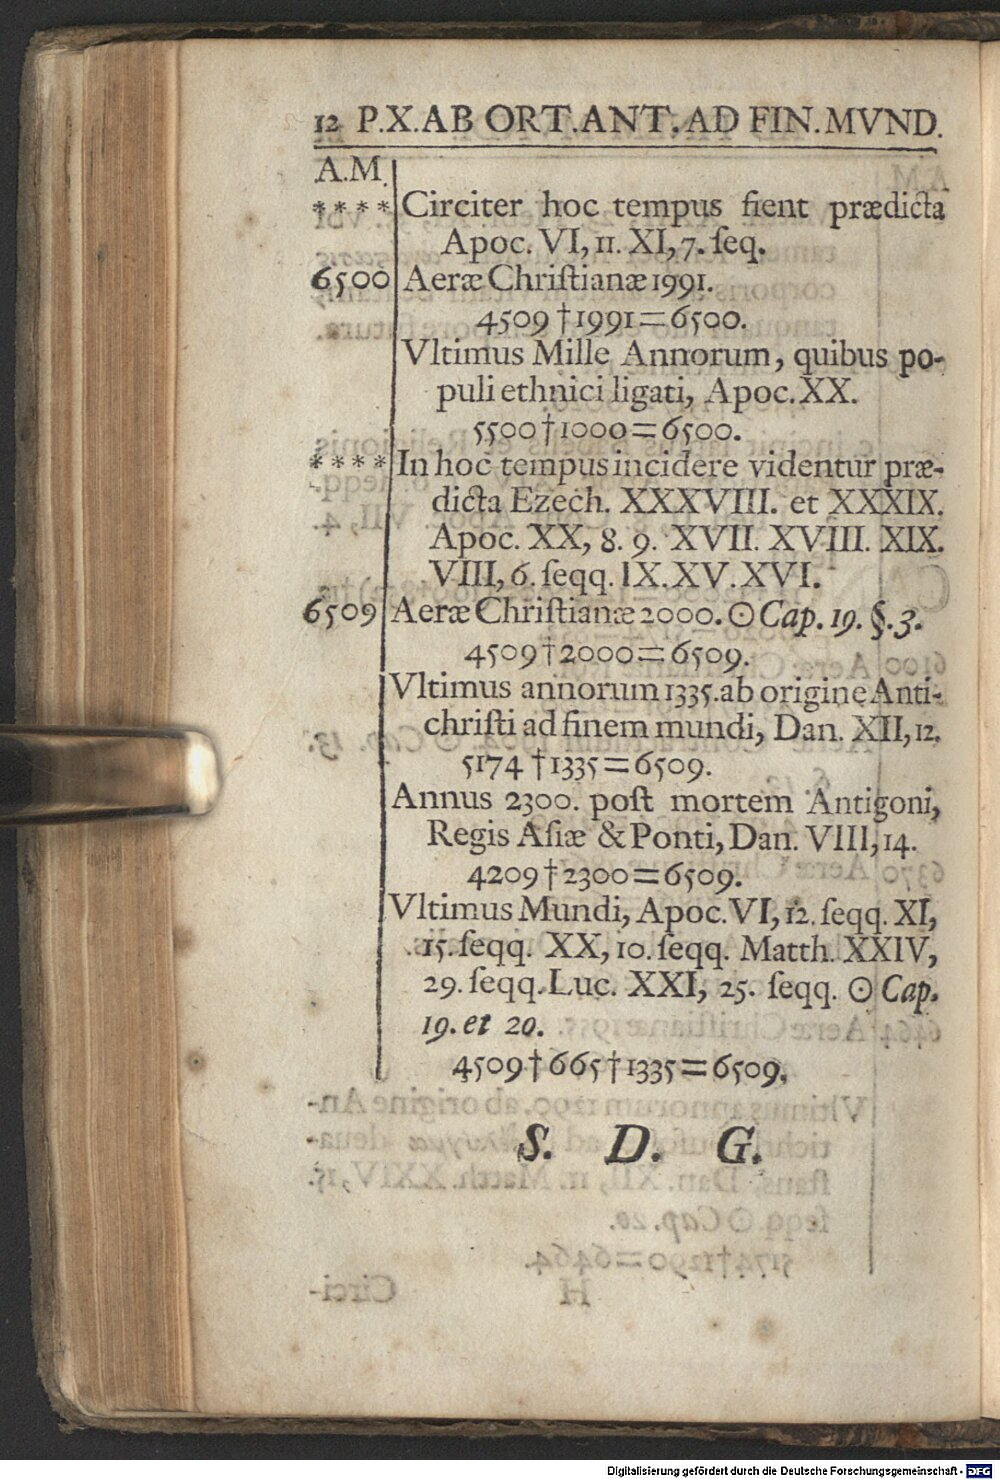 12 P.X.AB ORT.ANT.AD FIN.MVND.
A.M.
**** Circiter hoc tempus fient prædicta
Apoc. VI, 11. XI, 7. ſeq.
6500 Aeræ Chriſtianæ 1991.
4509†1991=6500.
Vltimus Mille Annorum, quibus po-
puli ethnici ligati, Apoc. XX.
5500†1000=6500.
**** In hoc tempus incidere videntur præ-
dicta Ezech. XXXVIII. et XXXIX.
Apoc. XX, 8. 9. XVII. XVIII. XIX.
VIII, 6. ſeqq. IX. XV. XVI.
6509 Aeræ Chriſtianæ 2000. ☉ Cap. 19. §. 3.
4509†2000=6509.
Vltimus annorum 1335. ab origine Anti-
chriſti ad finem mundi, Dan. XII, 12.
5174†1335=6509.
Annus 2300. poſt mortem Antigoni,
Regis Aſiæ & Ponti, Dan. VIII, 14.
4209†2300=6509.
Vltimus Mundi, Apoc. VI, 12. ſeqq. XI,
15. ſeqq. XX, 10. ſeqq. Matth. XXIV,
29. ſeqq. Luc. XXI, 25. ſeqq. ☉ Cap.
19. et 20.
4509†665†1335=6509.
S. D. G.
Digitalisierung gefördert durch die Deutsche Forschungsgemeinschaft - DFG